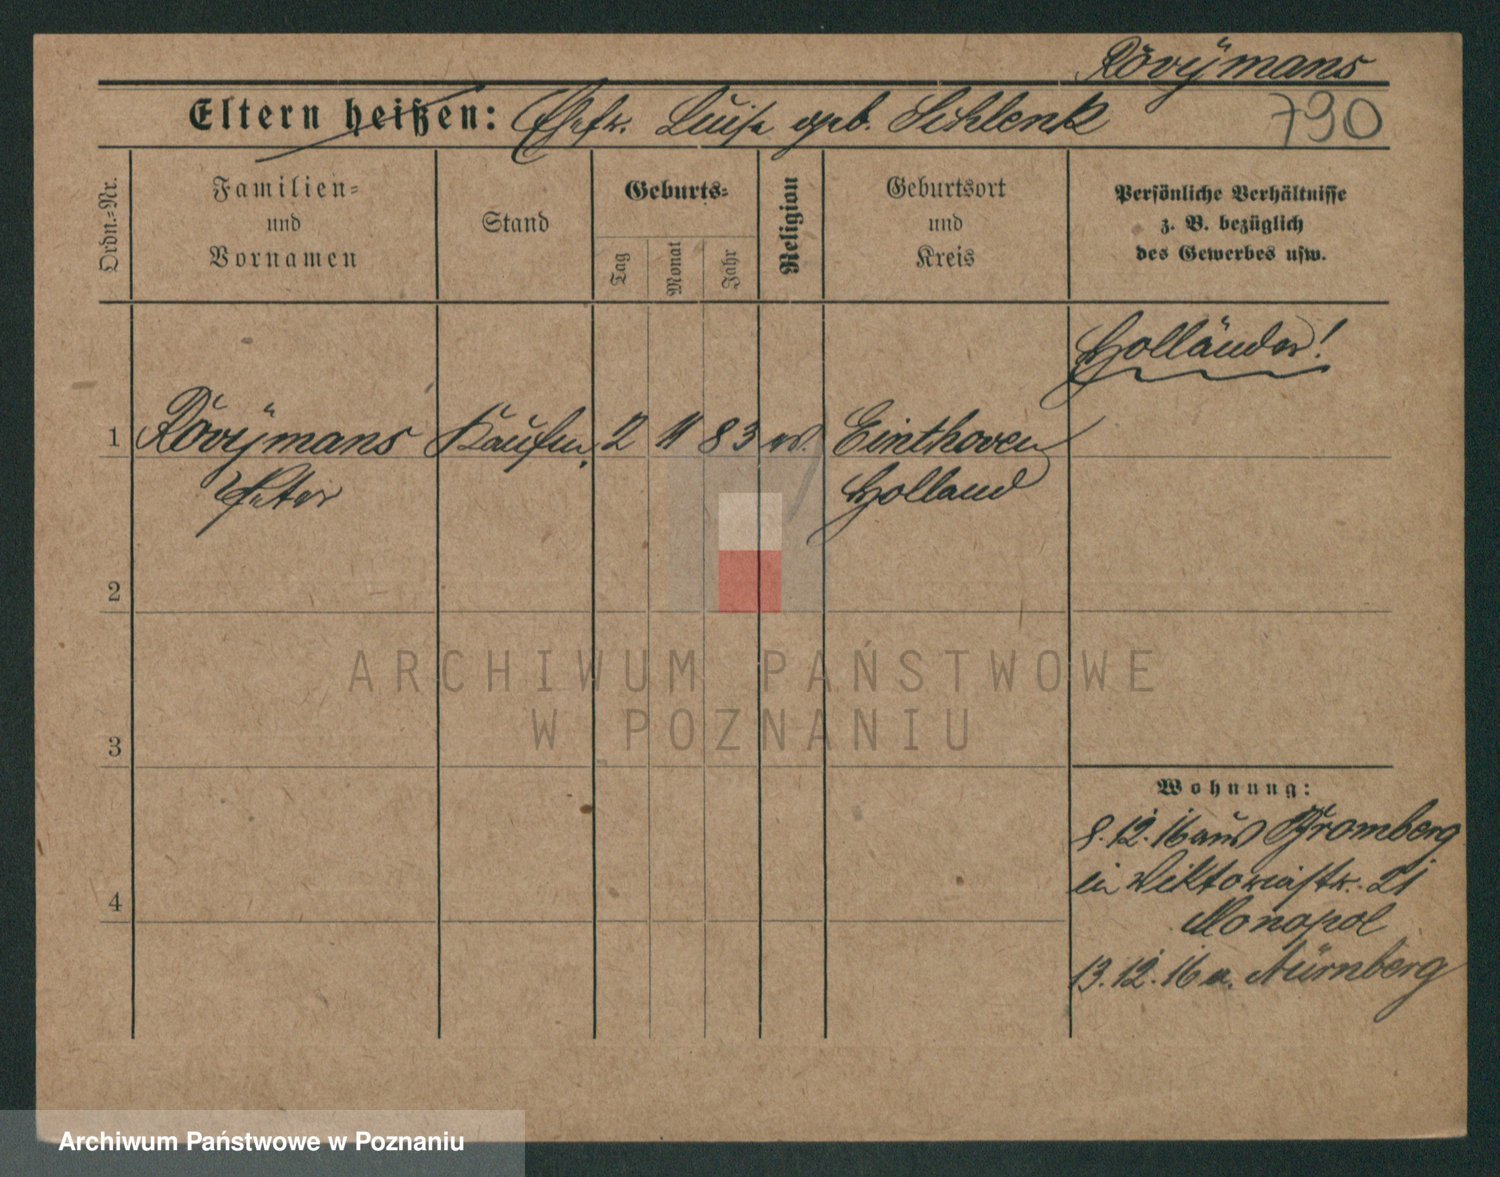 Rövÿmans
Eltern heißen: Ehefr. Luise geb. Schlenk
790
Ordn.-Nr.
Familien-
und
Vornamen
Stand
Geburts-
Tag
Monat
Jahr
Religion
Geburtsort
und
Kreis
Persönliche Verhältnisse
z. B. bezüglich
des Gewerbes usw.
Holländer!
1 Rövÿmans Kaufm. 2 11 83 ev. Einthoven
Peter Holland
2
ARCHIWUM PAŃSTWOWE
W POZNANIU
3
Wohnung:
8.12.16 aus Bromberg
in Viktoriastr. 21
4
Monopol
13.12.16 n. Nürnberg
Archiwum Państwowe w Poznaniu